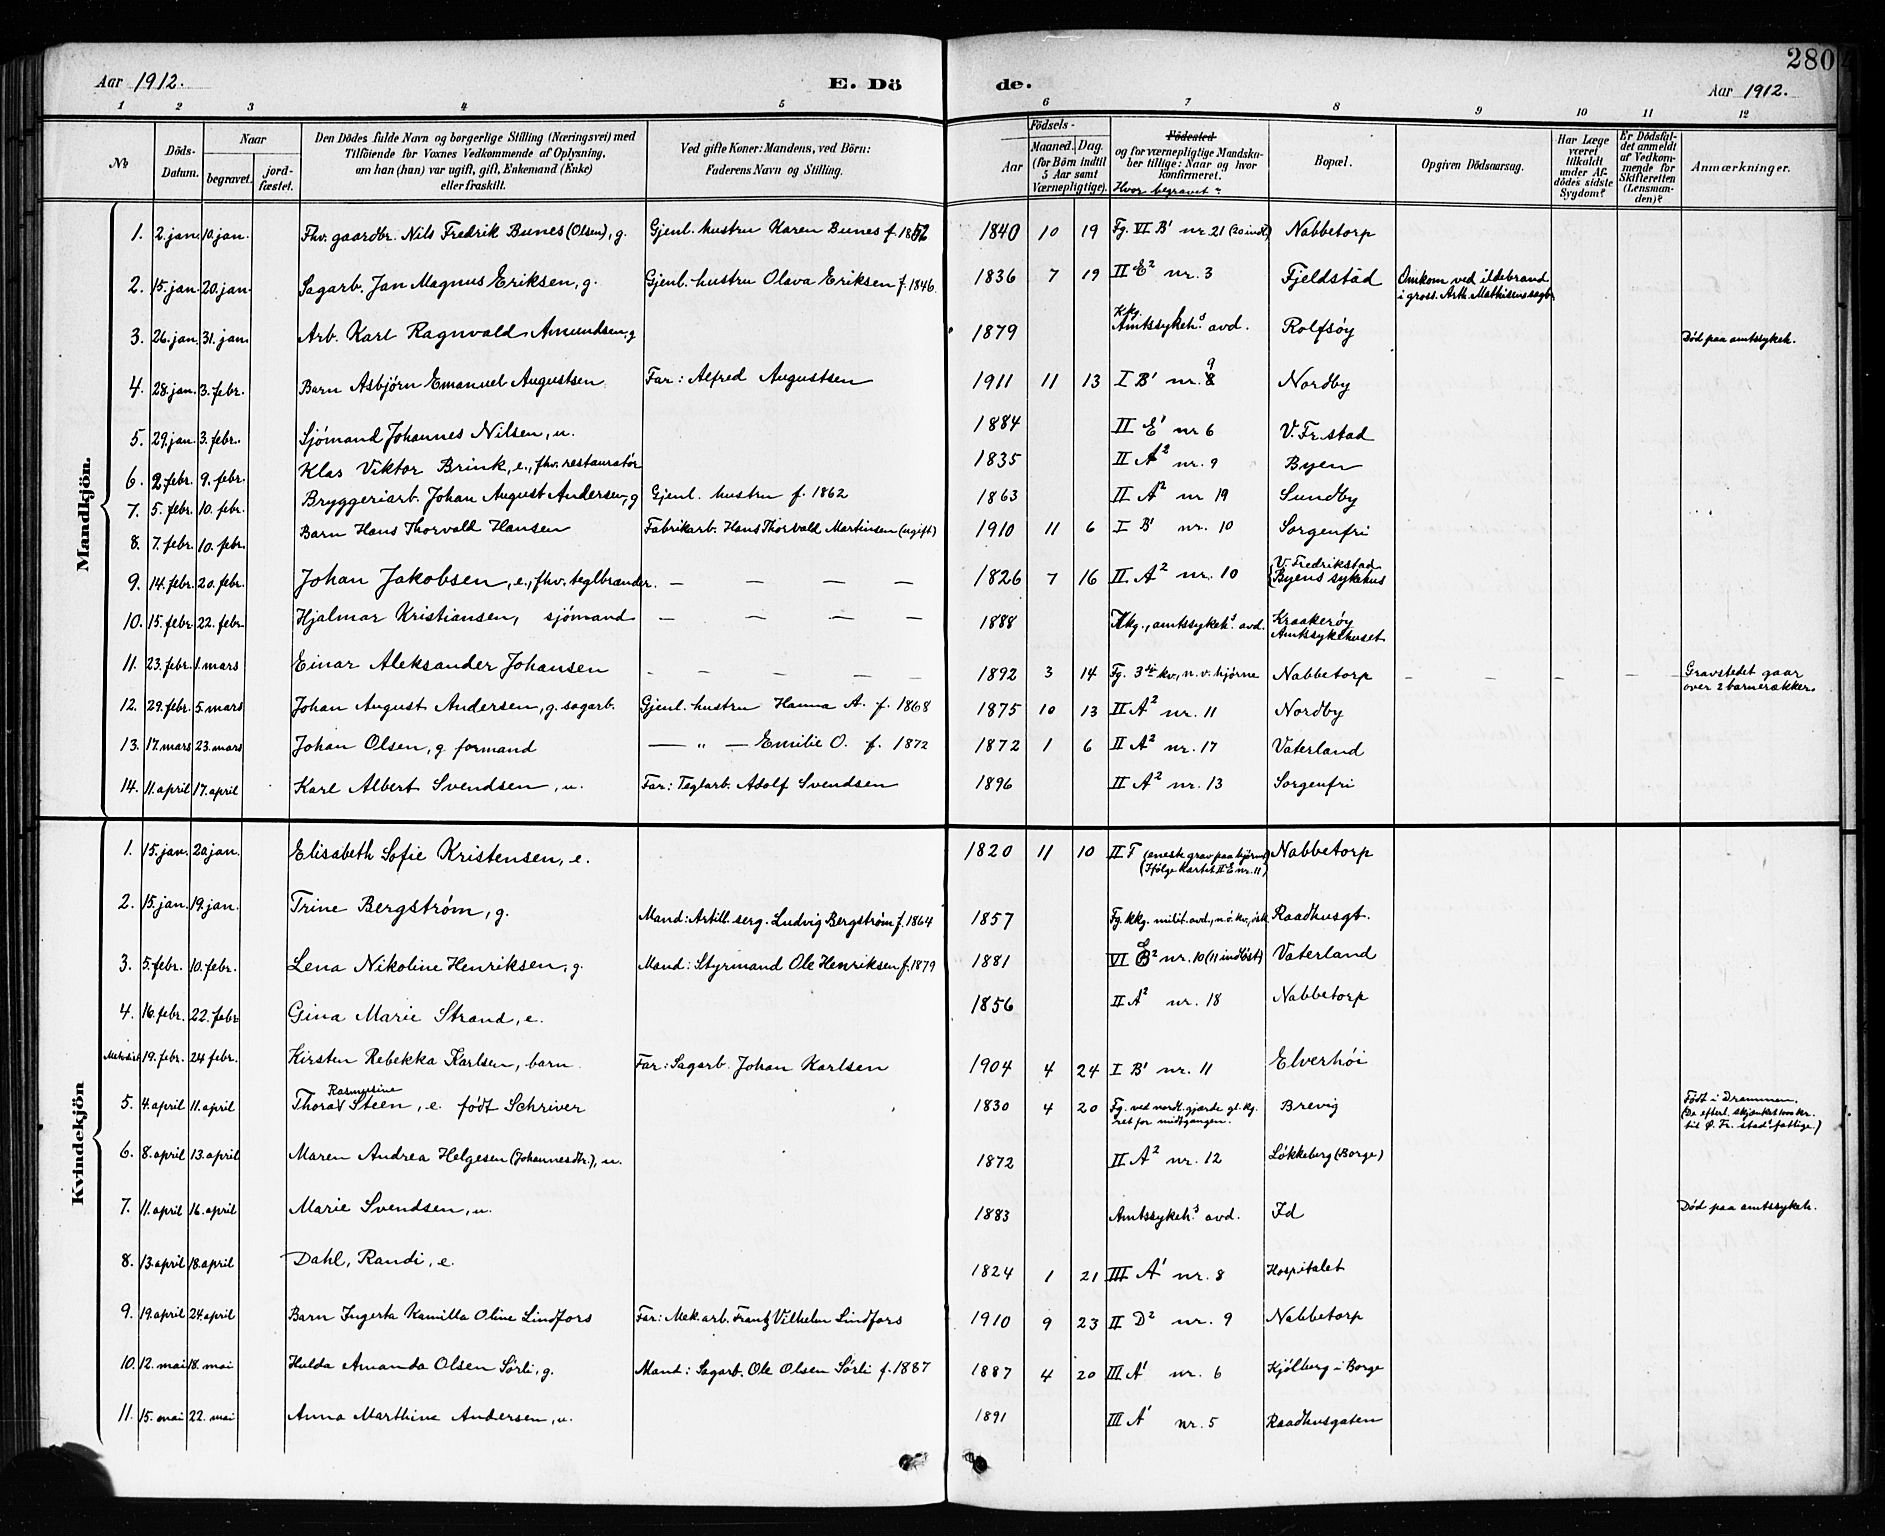 280
Aar 1912.
E. Dö
de.
Aar 1912.
1 2 3 4 5 6 7 8 9 10 11 12
No
Döds-Datum.
Naar
begravet.
jordfæstet.
Den Dödes fulde Navn og borgerlige Stilling (Næringsvei) med
Tilföiende for Voxnes Vedkommende af Oplysning,
om han (hun) var ugift, gift, Enkemand (Enke)
eller fraskilt.
Ved gifte Koner: Mandens, ved Börn:
Faderens Navn og Stilling.
Födsels-
Aar
Maaned. Dag.
(for Börn indtil
5 Aar samt
Værnepligtige).
Födested
og for værnepligtige Mandska-
ber tillige: Naar og hvor
konfirmeret.
Hvor begravet?
Bopæl.
Opgiven Dödsaarsag.
Har Læge
været
tilkaldt
under Af-
dödes sidste
Sygdom?
Er Dödsfal-
det anmeldt
af Vedkom-
mende for
Skifteretten
(Lensman-
den)?
Anmærkninger.
Mandkjön.
1. 2. jan. 10. jan. Fhv. gaardbr. Nils Fredrik Bunes (Olsen), g. Gjenl. hustru Karen Bunes f. 1852 1840 10 19 Fg. VI B¹ nr. 21 (20 indl.) Nabbetorp
2. 15. jan. 20. jan. Sagarb. Jan Magnus Eriksen, g. Gjenl. hustru Olava Eriksen f. 1846. 1836 7 19 II E² nr. 3 Fjeldstad Omkom ved ildebrand
i gross. Arth. Mathisens sagb.
3. 26. jan. 31. jan. Arb. Karl Ragnvald Amundsen, g 1879 Kkg. Amtssykeh.s avd. Rolfsøy Död paa amtssykeh.
4. 28. jan. 3. febr. Barn Asbjörn Emanuel Augustsen Far: Alfred Augustsen 1911 11 13 I B¹ nr. 8 9 Nordby
5. 29. jan. 3. febr. Sjömand Johannes Nilsen, u. 1884 II E¹ nr 6 V. Fr.stad
6. 2. febr. 9. febr. Klas Viktor Brink, e., fhv. restauratör 1835 II A² nr. 9 Byen
7. 5. febr. 10. febr. Bryggeriarb. Johan August Andersen, g Gjenl. hustru f. 1862 1863 II A² nr 19 Sundby
8. 7. febr. 10. febr. Barn Hans Thorvald Hansen Fabrikarb. Hans Thorvald Martinsen (ugift) 1910 11 6 I B¹ nr. 10 Sorgenfri
9. 14. febr. 20. febr. Johan Jakobsen, e., fhv. teglbrænder. — — — — 1826 7 16 II. A² nr. 10 V. Fredrikstad
Byens sykehus
10. 15. febr. 22. febr. Hjalmar Kristiansen, sjömand — — — — 1888 Kkg., amtssykeh.s avd. Kraakeröy
Amtssykehuset
11. 23. febr. 1. mars Einar Aleksander Johansen — — — — — 1892 3 14 Fg. 3die kv., n.v. hjørne Nabbetorp — — — — — — Gravstedet gaar
over 2 barnerækker.
12. 29. febr. 5. mars Johan August Andersen, g. sagarb. Gjenl. hustru Hanna A. f. 1868 1875 10 13 II A² nr. 11 Nordby
13. 17. mars 23. mars Johan Olsen, g formand — „ — Emilie O. f. 1872 1872 1 6 II A² nr. 17 Vaterland
14. 11. april 17. april Karl Albert Svendsen, u. Far: Teglarb. Adolf Svendsen 1896 II A² nr. 13 Sorgenfri
Kvindekjön
1. 15. jan. 20 jan. Elisabeth Sofie Kristensen, e. 1820 11 10 II F (enesk. grav paa hjørnet)
(Ifølge kartet II E nr. 11) Nabbetorp
2. 15. jan. 19. jan. Trine Bergström, g. Mand: Artill. serg. Ludvig Bergström f. 1864 1857 Fg. kkg. milit. avd., n.ö. kv., Raadhusgt.
3. 5. febr. 10. febr. Lena Nikoline Henriksen, g. Mand: Styrmand Ole Henriksen f. 1879 1881 VI E² nr. 10 (11 indlöst) Vaterland
4. 16. febr. 22. febr Gina Marie Strand, e. 1856 II A² nr. 18 Nabbetorp
19. febr. 24 febr. Kirsten Rebekka Karlsen, barn Far: Sagarb. Johan Karlsen 1904 4 24 I B¹ nr. 11 Elverhöi
5. 4. april 11. april Thora Rasmusine Steen, e. födt Schriver 1830 4 20 Fg. ved nordl. gjærde gl. kg.
ret for midtgangen. Brevig Födt i Drammen.
(De efterl. skjænket 1000 kr.
til Ø. Fr.stads fattige.)
6. 8. april 13. april Maren Andrea Helgesen (Johannesdtr.), u. 1872 II A² nr. 12 Lökkeberg (Borge)
7. 11. april 16. april Marie Svendsen, u. 1883 Amtssykeh.s avd. Id Död paa amtssykeh.
8. 13. april 18. april Dahl, Randi, e. 1824 1 21 III A¹ nr. 8 Hospitalet
9. 19. april 24. april Barn Ingerta Kamilla Oline Lindfors Far: Mek. arb. Frantz Vilhelm Lindfors 1910 9 23 II D² nr. 9 Nabbetorp
10. 12. mai 18. mai Hulda Amanda Olsen Sörli, g. Mand: Sagarb. Ole Olsen Sörli f. 1887 1887 4 20 III A¹ nr. 6 Kjölberg i Borge
11. 15. mai 22. mai Anna Marthine Andersen, u. 1891 III A¹ nr. 5 Raadhusgaten